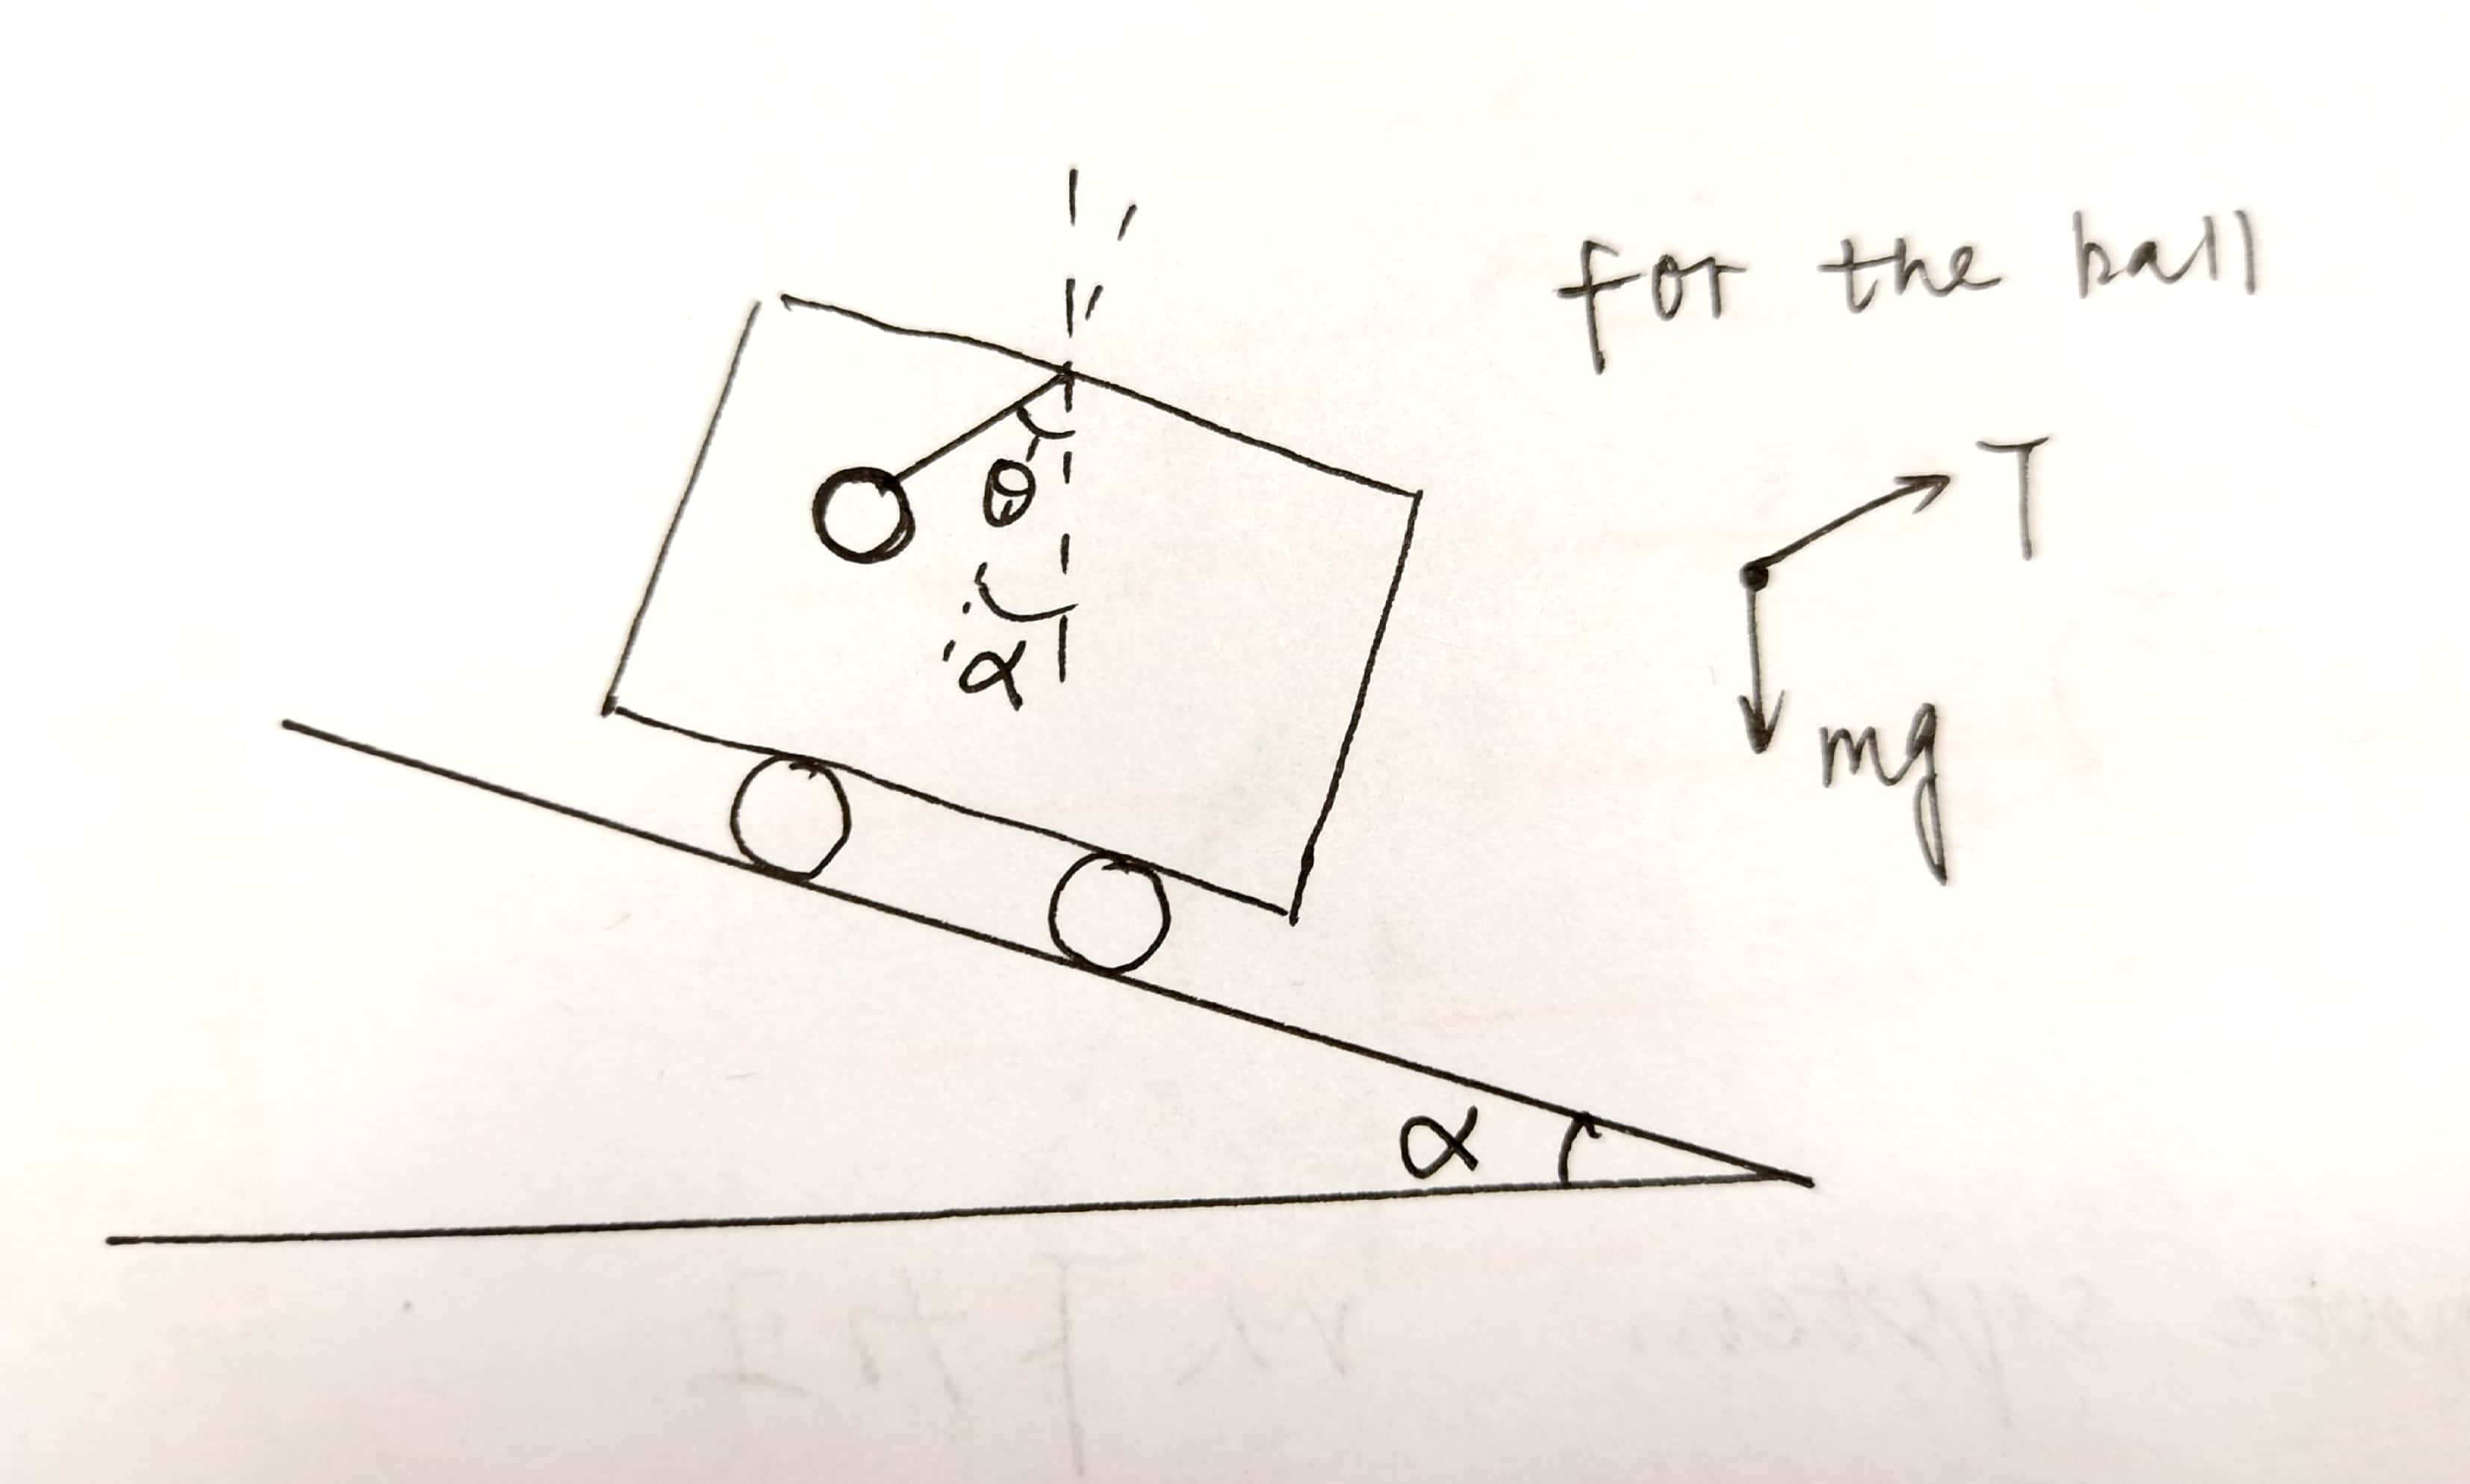 for the ball
T
θ
α
mg
α